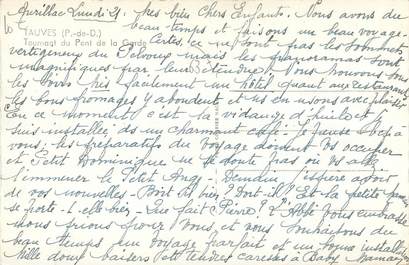 Aurillac Lundi 21. Mes bien Chers Enfants. Nous avons du
beau temps et faisons un beau voyage.
TAUVES (P.-de-D.)
Tournant du Pont de la Garde
Certes, ce ne sont pas les sommets
vertigineux du mais les panoramas sont
magnifiques par leur étendue. Nous trouvons
les soirs facilement un hôtel, quant aux restaurants
les bons fromages y abondent et nous en usons avec plaisir
En ce moment c'est la vidange d'huile et
suis installée ds un charmant café. Je pense bcp à
vous, les préparatifs du voyage doivent vs occuper
et Petit Dominique ne se doute pas où vs allez
l'emmener le Petit Ange. Demain j'espère avoir
de vos nouvelles. Boit-il bien? Dort-il? Et la petite maman
se porte-t-elle bien. Que fait Pierre? L'Abbé vous embrasse
nous prions pour vous et nous souhaitons du
beau temps, un voyage parfait et une bonne installation
Mille doux baisers et tendres caresses à Baby Maman